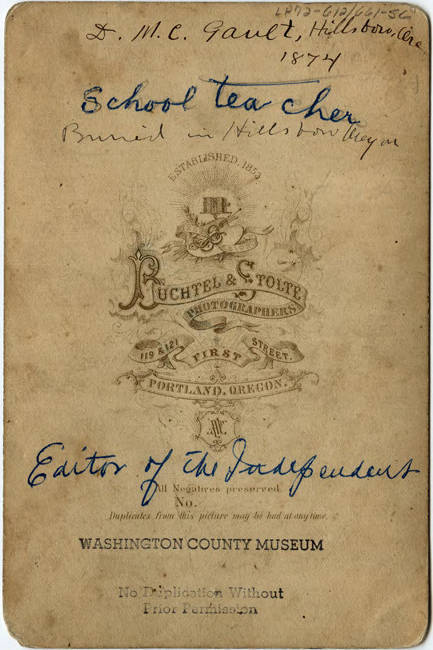 LR72-612/661-56
D. M. C. Gault, Hillsboro, Ore
1874
School teacher
Buried in Hillsboro Oregon
ESTABLISHED. 1853
BUCHTEL & STOLTE
PHOTOGRAPHERS
119 & 121 FIRST STREET.
PORTLAND, OREGON.
Editor of the Independent
All Negatives preserved.
No.
Duplicates from this picture may be had at any time.
WASHINGTON COUNTY MUSEUM
No Duplication Without
Prior Permission